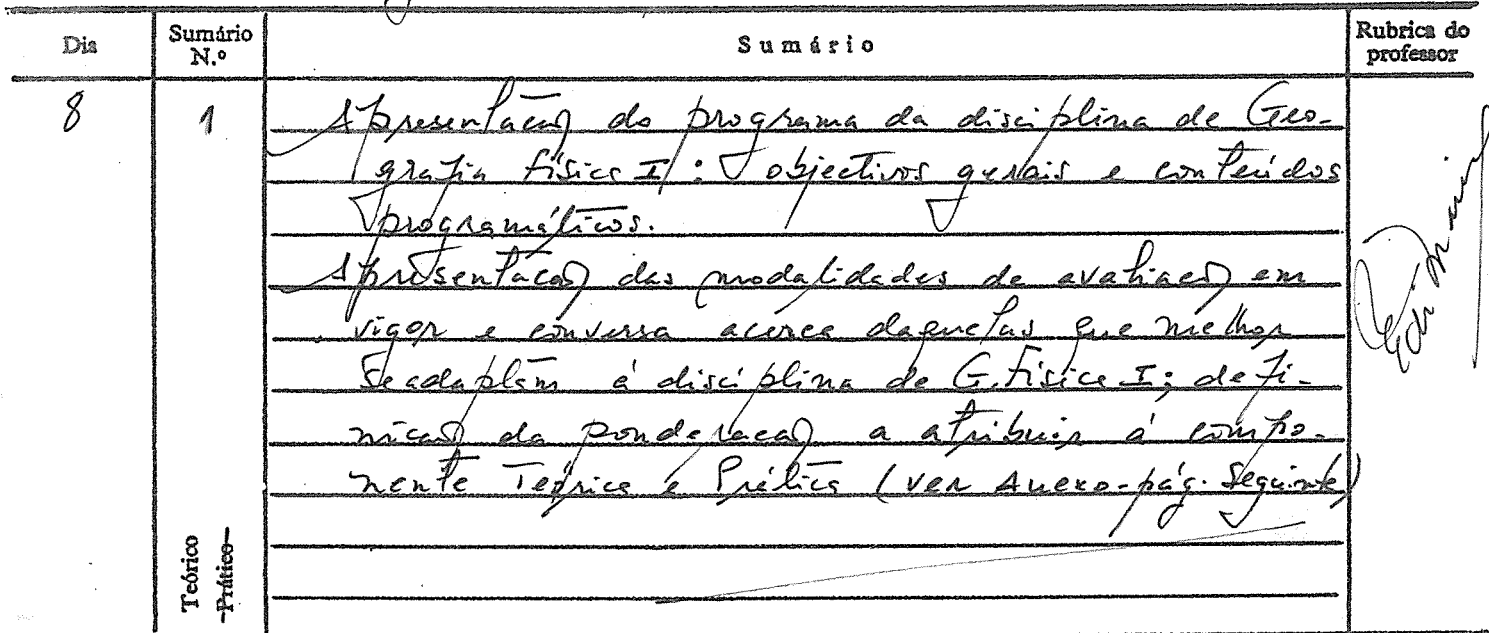 Dia Sumário N.º Sumário Rubrica do professor
8 1 Apresentação do programa da disciplina de Geo-
grafia física I: objectivos gerais e conteúdos
programáticos.
Apresentação das modalidades de avaliação em
vigor e conversa acerca daquelas que melhor
se adaptam à disciplina de G. Física I; defi-
nição da ponderação a atribuir à compo-
nente Teórica e Prática (ver Anexo-pág. Seguinte)
Teórico
Prático